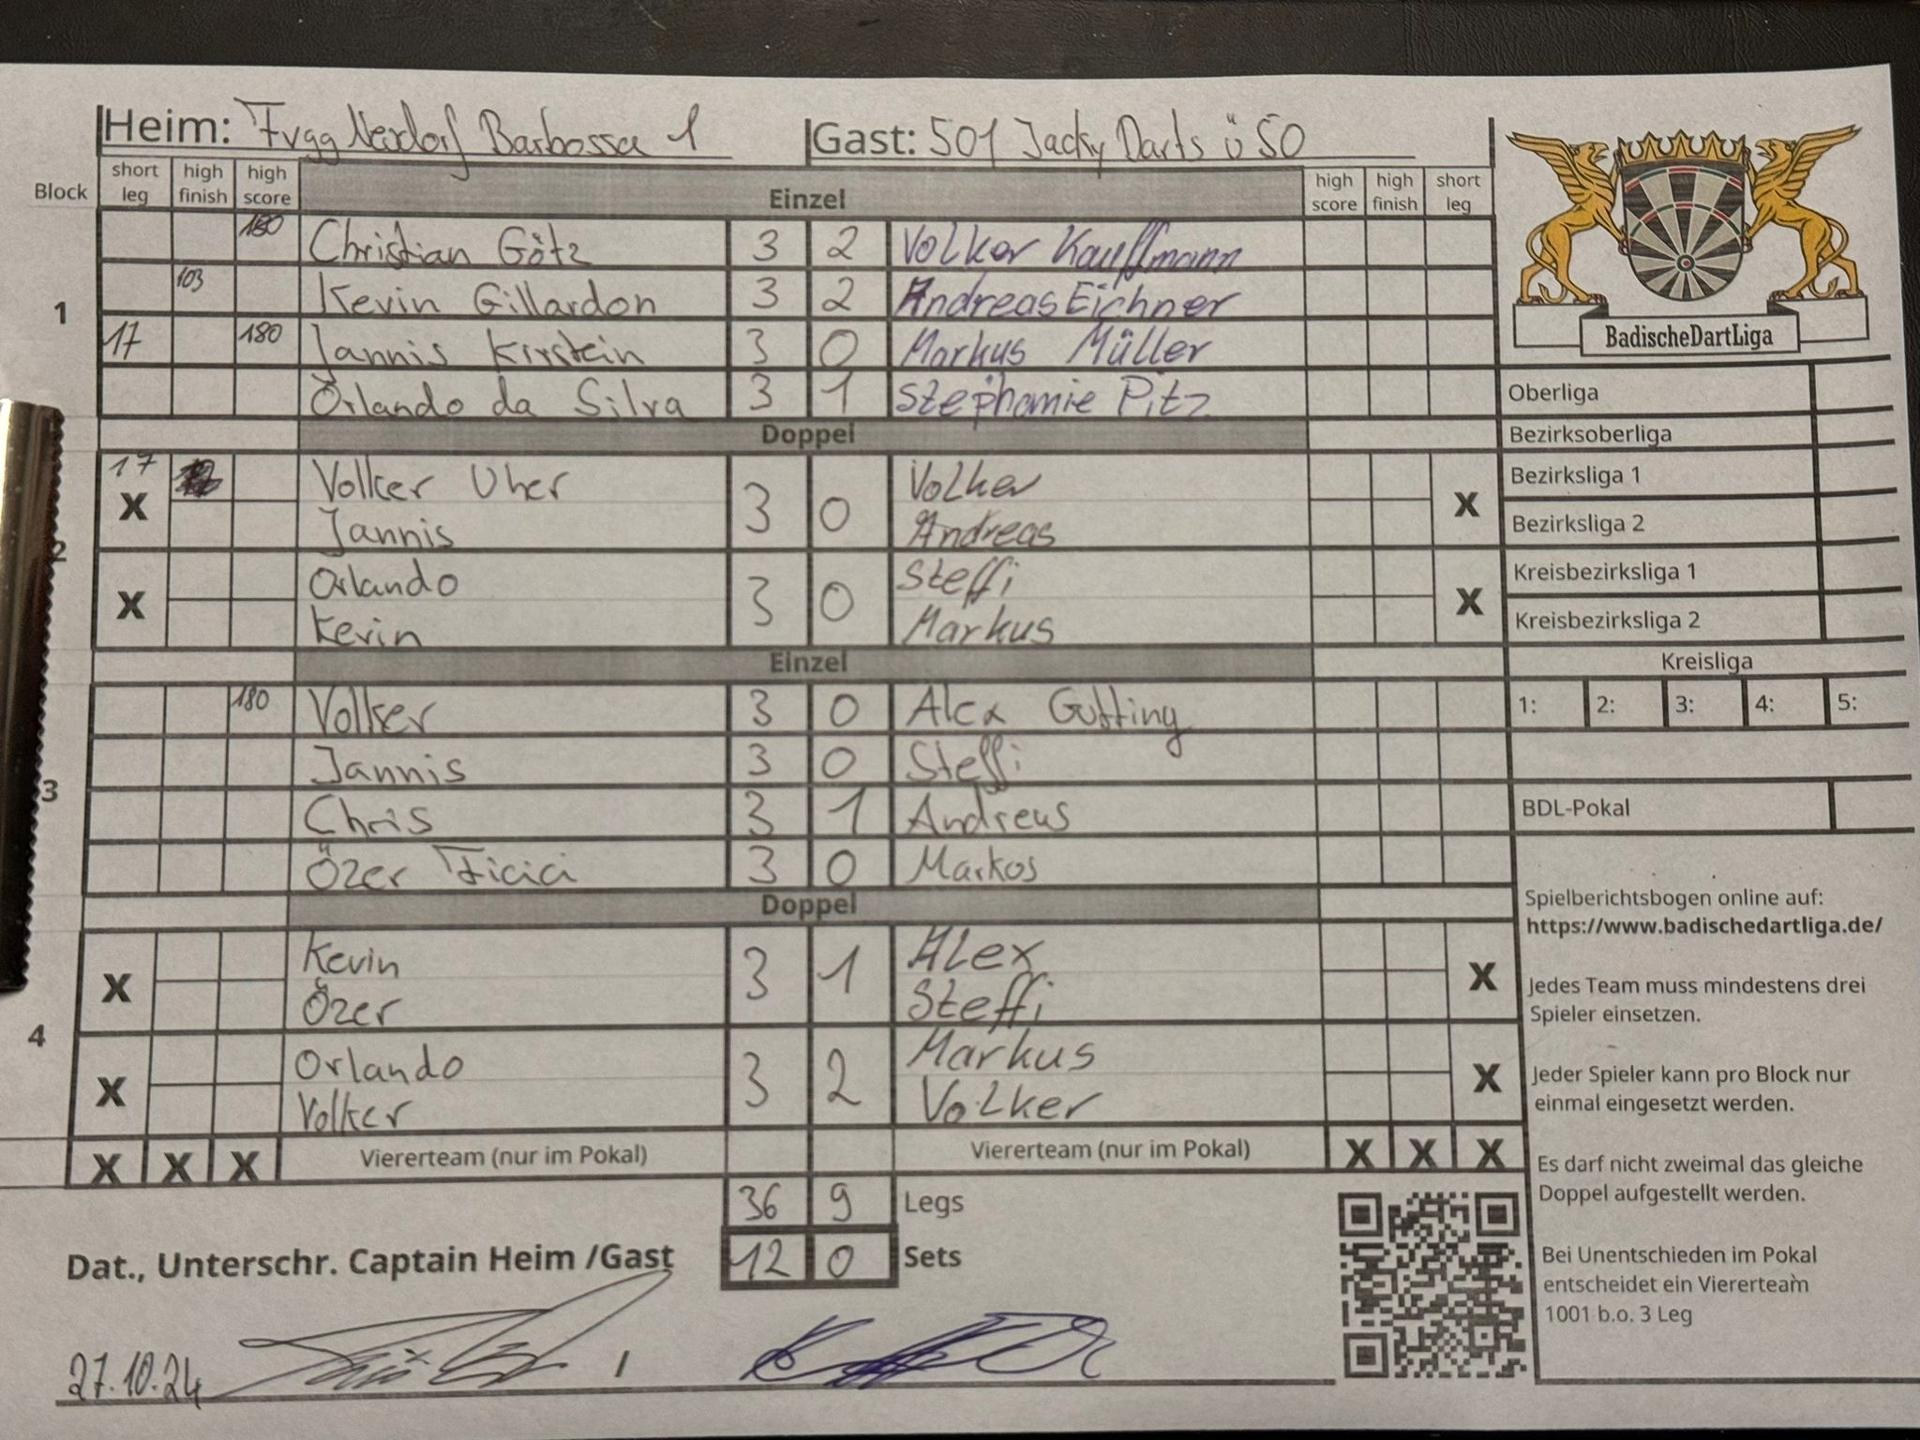 Heim: Fvgg Nexdorf Barbossa 1 Gast: 501 Jacky Darts ü50
Block short leg high finish high score Einzel high score high finish short leg
1
180 Christian Götz 3 2 Volker Kauffmann
103 Kevin Gillardon 3 2 Andreas Eichner
17 180 Jannis Kirstein 3 0 Markus Müller
Orlando da Silva 3 1 Stephanie Pitz
Doppel
2
17 X Volker Uher 3 0 Volker X
Jannis Andreas
X Orlando 3 0 Steffi X
Kevin Markus
Einzel
3
180 Volker 3 0 Alex Gutting
Jannis 3 0 Steffi
Chris 3 1 Andreas
Özer Ficici 3 0 Markos
Doppel
4
X Kevin 3 1 Alex X
Özer Steffi
X Orlando 3 2 Markus X
Volker Volker
X X X Viererteam (nur im Pokal) Viererteam (nur im Pokal) X X X
36 9 Legs
12 0 Sets
Dat., Unterschr. Captain Heim /Gast
27.10.24 /
BadischeDartLiga
Oberliga
Bezirksoberliga
Bezirksliga 1
Bezirksliga 2
Kreisbezirksliga 1
Kreisbezirksliga 2
Kreisliga
1: 2: 3: 4: 5:
BDL-Pokal
Spielberichtsbogen online auf:
https://www.badischedartliga.de/
Jedes Team muss mindestens drei
Spieler einsetzen.
Jeder Spieler kann pro Block nur
einmal eingesetzt werden.
Es darf nicht zweimal das gleiche
Doppel aufgestellt werden.
Bei Unentschieden im Pokal
entscheidet ein Viererteam
1001 b.o. 3 Leg